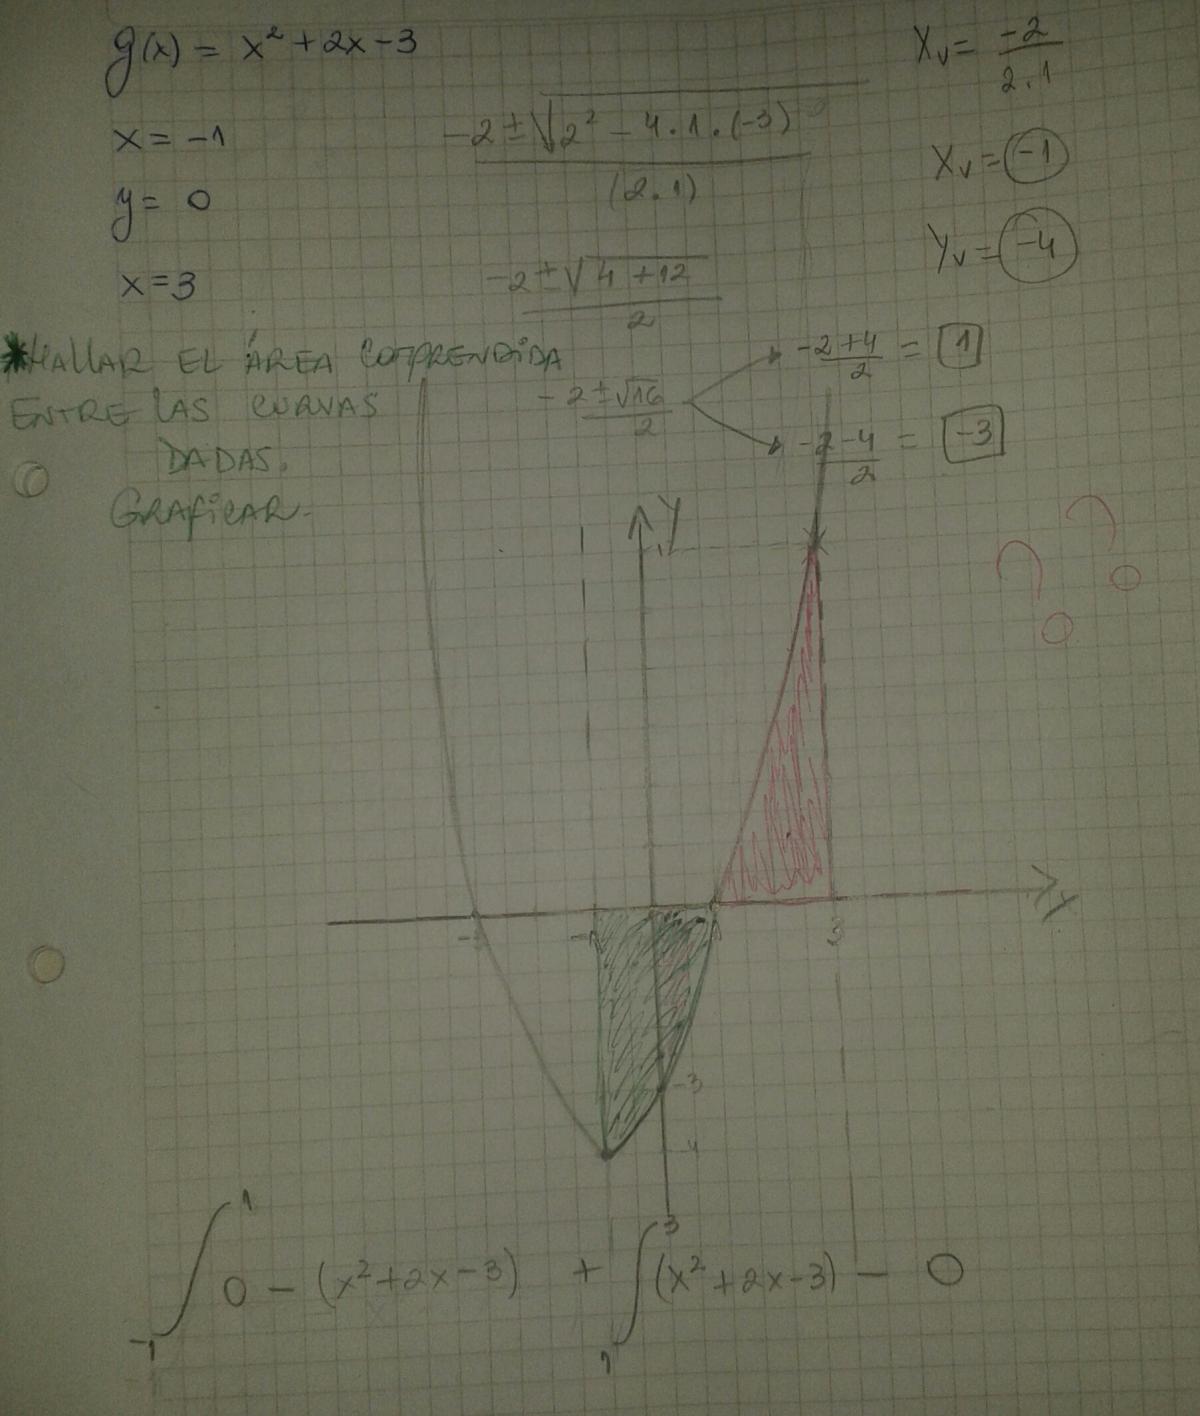 g(x) = x² + 2x - 3
x = -1
y = 0
x = 3
-2 ± √2² - 4 . 1 . (-3)
(2 . 1)
-2 ± √4 + 12
2
- 2 ± √16
2
-2 + 4 = 1
2
-2 - 4 = -3
2
Xv = -2
2 . 1
Xv = -1
Yv = -4
*HALLAR EL ÁREA COMPRENDIDA
ENTRE LAS CURVAS
DADAS.
GRAFICAR.
Y
X
-3
-1
1
3
-3
-4
? ?
∫ 1 -1 0 - (x² + 2x - 3) + ∫ 3 1 (x² + 2x - 3) - 0